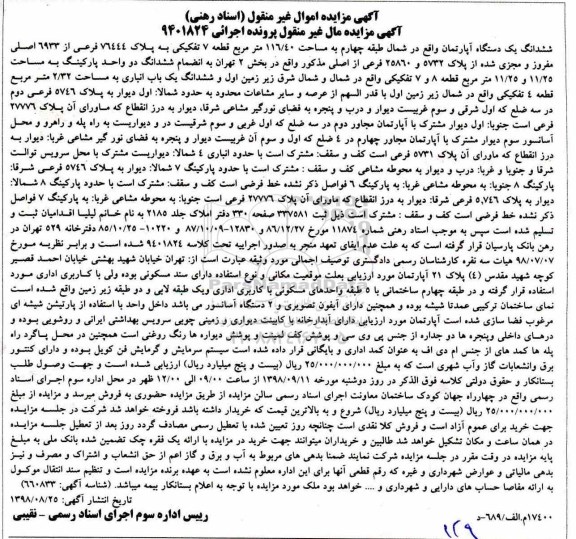 آگهی مزایده اموال غیر منقول (اسناد رهنی)
آگهی مزایده مال غیر منقول پرونده اجرائی ۹۴۰۱۸۲۴
ششدانگ یک دستگاه آپارتمان واقع در شمال طبقه چهارم به مساحت ۱۱۶/۴۰ متر مربع قطعه ۷ تفکیکی به پلاک ۷۶۴۴۴ فرعی از ۶۹۳۳ اصلی
مفروز و مجزی شده از پلاک ۵۷۳۲ و ۲۵۸۶۰ فرعی از اصلی مذکور واقع در بخش ۲ تهران به انضمام ششدانگ دو واحد پارکینگ به مساحت
۱۱/۲۵ و ۱۱/۲۵ متر مربع قطعه ۸ و ۷ تفکیکی واقع در شمال و شمال شرق زیر زمین اول و ششدانگ یک باب انباری به مساحت ۲/۳۲ متر مربع
قطعه ۴ تفکیکی واقع در شمال زیر زمین اول با قدر السهم از عرصه و سایر مشاعات محدود به حدود شمالا: اول دیوار به پلاک ۵۷۴۶ فرعی دوم
در سه ضلع که اول شرقی و سوم غربیست دیوار و درب و پنجره به فضای نورگیر مشاعی شرقا، دیوار به درز انقطاع که ماورای آن پلاک ۲۷۷۷۶
فرعی است جنوبا: اول دیوار مشترک با آپارتمان مجاور دوم در سه ضلع که اول غربی و سوم شرقیست در و دیواریست به راه پله و راهرو و محل
آسانسور سوم دیوار مشترک با آپارتمان مجاور چهارم در ۴ ضلع که اول و سوم آن غربیست دیوار و پنجره به فضای نور گیر مشاعی غربا: دیوار به
درز انقطاع که ماورای آن پلاک ۵۷۳۱ فرعی است کف و سقف: مشترک است با حدود انباری ۴ شمالا: دیواریست مشترک با محل سرویس توالت
شرقا و جنوبا و غربا: درب و دیوار به محوطه مشاعی کف و سقف: مشترک است با حدود پارکینگ ۷ شمالا: دیوار به پلاک ۵۷۴۶ فرعی شرقا:
پارکینگ ۸ جنوبا: به محوطه مشاعی غربا: به پارکینگ ۶ فواصل ذکر نشده خط فرضی است کف و سقف: مشترک است با حدود پارکینگ ۸ شمالا:
دیوار به پلاک ۵,۷۴۶ فرعی شرقا: دیوار به درز انقطاع که ماورای آن پلاک ۲۷۷۷۶ فرعی است جنوبا: به محوطه مشاعی غربا: به پارکینگ ۷ فواصل
ذکر نشده خط فرضی است کف و سقف : مشترک است ذیل ثبت ۳۳۷۵۸۱ صفحه ۳۳۰ دفتر املاک جلد ۲۱۸۵ به نام خانم لیلیا اقدامیان ثبت و
تسلیم شده است سپس به موجب اسناد رهنی شماره ۱۱۸۷۴ مورخ ۸۶/۱۲/۲۷ و ۱۲۸۳۰-۸۷/۱۰/۰۹ و ۱۰۲۲۰-۸۵/۱۰/۲۵ دفترخانه ۵۲۹ تهران در
رهن بانک پارسیان قرار گرفته است که به علت عدم ایفای تعهد منجر به صدور اجراییه تحت کلاسه ۹۴۰۱۸۲۴ شده است و برابر نظریه مورخ
۹۸/۰۷/۰۷ هیات سه نفره کارشناسان رسمی دادگستری توصیف اجمالی مورد وثیقه عبارت است از: تهران خیابان شهید بهشتی خیابان احمد قصیر
کوچه شهید مقدس (۴) پلاک ۲۱ آپارتمان مورد ارزیابی بعلت موقعیت مکانی و نوع استفاده دارای سند مسکونی بوده ولی با کاربری اداری مورد
استفاده قرار گرفته و در طبقه چهارم ساختمانی با ۵ طبقه واحدهای مسکونی با کاربری اداری ویک طبقه لابی و دو طبقه زیر زمین واقع شده است
نمای ساختمان ترکیبی عمدتا شیشه بوده و همچنین دارای آیفون تصویری و ۲ دستگاه آسانسور می باشد داخل واحد با استفاده از پارتیشن شیشه ای
مرغوب فضا سازی شده است آپارتمان مورد ارزیابی دارای آبدارخانه با کابینت دیواری و زمینی چوبی سرویس بهداشتی ایرانی و روشویی بوده و
درهای داخلی وپنجره ها دو جداره از جنس پی وی سی و پوشش کف لمینت و پوشش دیواره ها رنگ روغنی است همچنین در محل پاگرد راه
پله ها کمد های از جنس ام دی اف به عنوان کمد اداری و بایگانی قرار داده شده است سیستم سرمایش و گرمایش فن کویل بوده و دارای کنتور
برق وانشعابات گاز وآب شهری است که به مبلغ ۲۵/۰۰۰/۰۰۰/۰۰۰ ریال (بیست و پنج میلیارد ریال) ارزیابی شده است و جهت وصول طلب
بستانکار و حقوق دولتی کلاسه فوق الذکر در روز دوشنبه مورخه ۱۳۹۸/۰۹/۱۱ از ساعت ۰۹/۰۰ الی ۱۲/۰۰ ظهر در محل اداره سوم اجرای اسناد
رسمی واقع در چهارراه جهان کودک ساختمان معاونت اجرای اسناد رسمی سالن مزایده از طریق مزایده حضوری به فروش میرسد و مزایده از مبلغ
۲۵/۰۰۰/۰۰۰/۰۰۰ ریال (بیست و پنج میلیارد ریال) شروع و به بالاترین قیمت که خریدار داشته باشد فروخته خواهد شد شرکت در جلسه مزایده
جهت خرید برای عموم آزاد است و فروش کلا نقدی است چنانچه روز تعیین شده با تعطیل رسمی مصادف گردد روز بعد از تعطیل جلسه مزایده
در همان ساعت و مکان تشکیل خواهد شد طالبین و خریداران میتوانند جهت خرید در مزایده با ارائه یک فقره چک تضمین شده بانک ملی به مبلغ
پایه مزایده در وقت مقرر در جلسه مزایده شرکت نمایند ضمنا بدهی های مربوط به آب و برق و گاز اعم از حق انشعاب و اشتراک و مصرف و نیز
بدهی مالیاتی و عوارض شهرداری و غیره که رقم قطعی آنها برای این اداره معلوم نشده است به عهده برنده مزایده است و تنظیم سند انتقال موکول
به ارائه مفاصا حساب های دارایی و شهرداری و .... خواهد بود ملک مورد مزایده با توجه به اعلام بستانکار بیمه میباشد. (شناسه آگهی: ۶۶۰۸۳۳)
تاریخ انتشار آگهی: ۱۳۹۸/۰۸/۲۵
رییس اداره سوم اجرای اسناد رسمی – نقیبی
۱۷۴۰۰م.الف/۶۸۹-د
۱۲۹